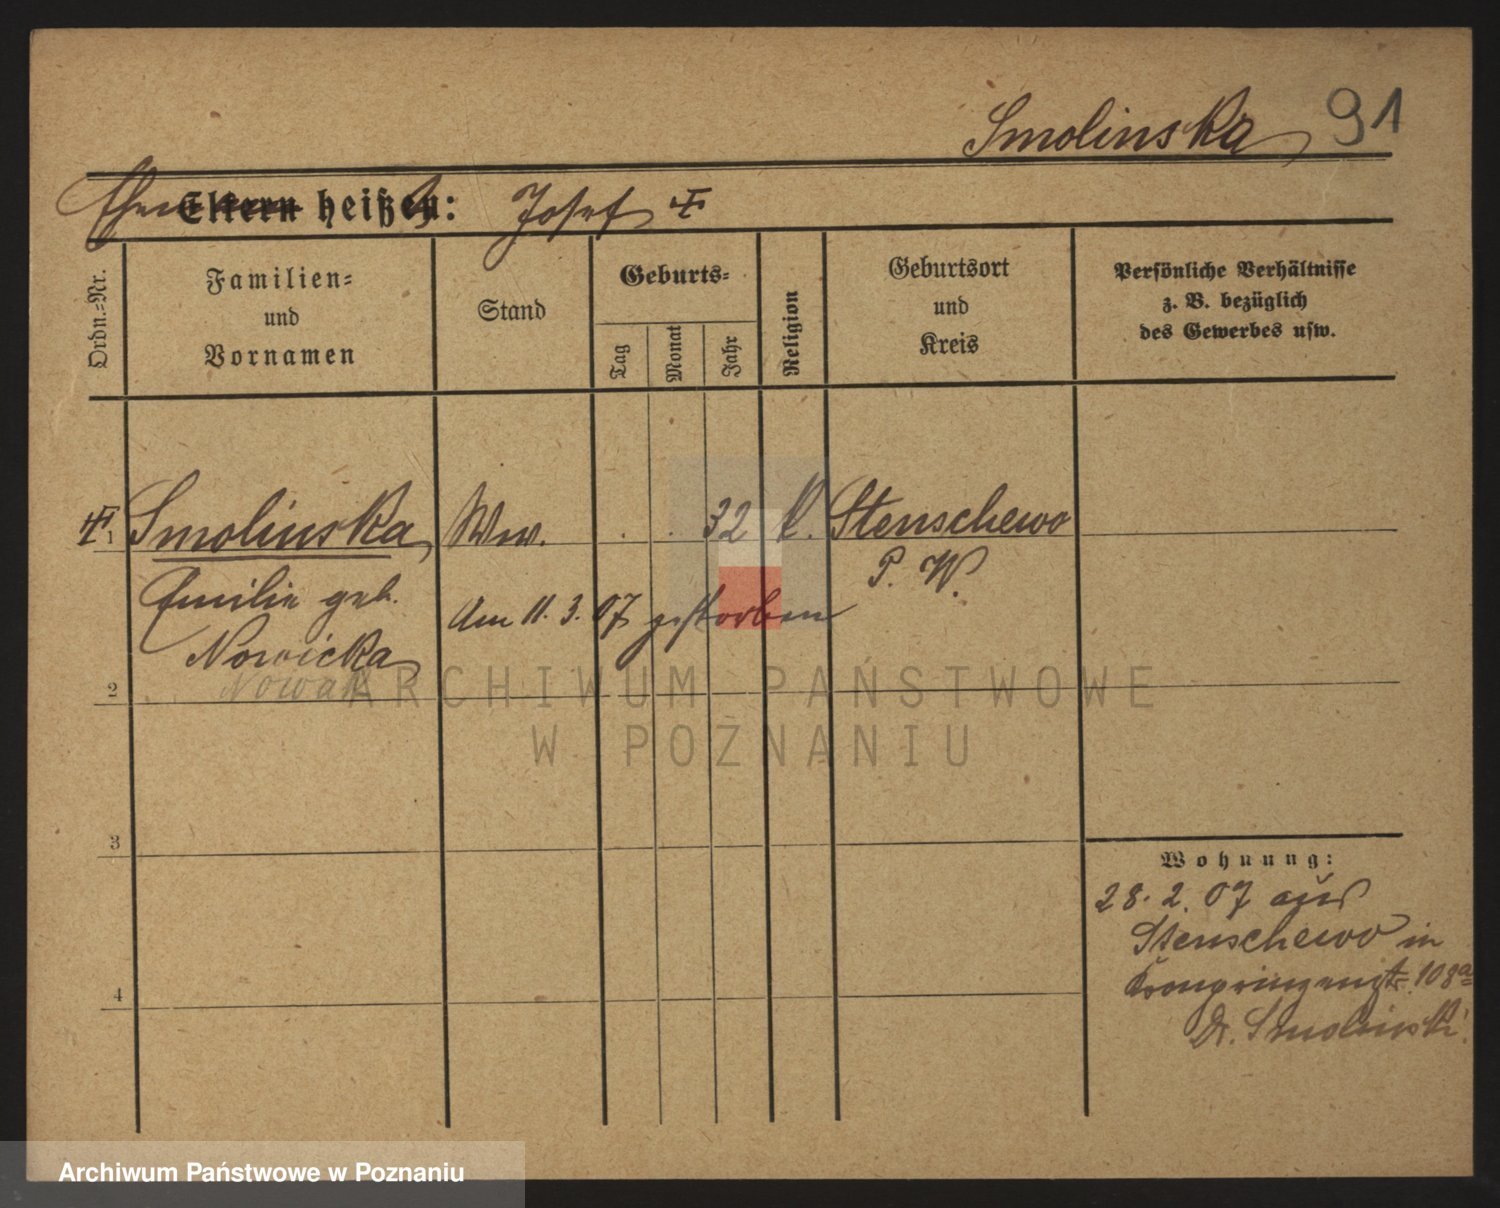 Smolinska 91
Eltern heißen: Josef
Ordn.=Nr.
Familien=
und
Vornamen
Stand
Geburts=
Tag
Monat
Jahr
Religion
Geburtsort
und
Kreis
Persönliche Verhältnisse
z. B. bezüglich
des Gewerbes usw.
1 Smolinska Ww. . . 32 k. Stenschewo
P. W.
Emilie geb.
Am 11. 3. 07 gestorben
Nowicka
Nowak
2
3
4
Wohnung:
28. 2. 07 aus
Stenschewo in
Kronprinzenstr. 108a
Dr. Smolinski.
ARCHIWUM PAŃSTWOWE
W POZNANIU
Archiwum Państwowe w Poznaniu